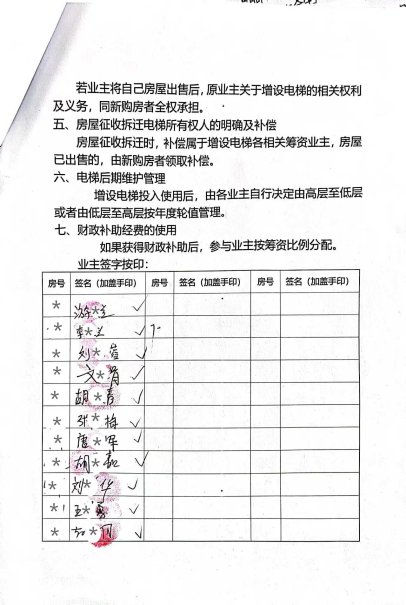 若业主将自己房屋出售后，原业主关于增设电梯的相关权利
及义务，同新购房者全权承担。
五、房屋征收拆迁电梯所有权人的明确及补偿
房屋征收拆迁时，补偿属于增设电梯各相关筹资业主，房屋
已出售的，由新购房者领取补偿。
六、电梯后期维护管理
增设电梯投入使用后，由各业主自行决定由高层至低层
或者由低层至高层按年度轮值管理。
七、财政补助经费的使用
如果获得财政补助后，参与业主按筹资比例分配。
业主签字按印：
房号 签名（加盖手印） 房号 签名（加盖手印） 房号 签名（加盖手印）
* 游*兰 ✓
* 李*兰 ✓
* 刘*萱 ✓
* 文*蓉 ✓
* 胡*青 ✓
* 张*梅 ✓
* 唐*军 ✓
* 胡* ✓
* 刘*华 ✓
* 王* ✓
* * ✓